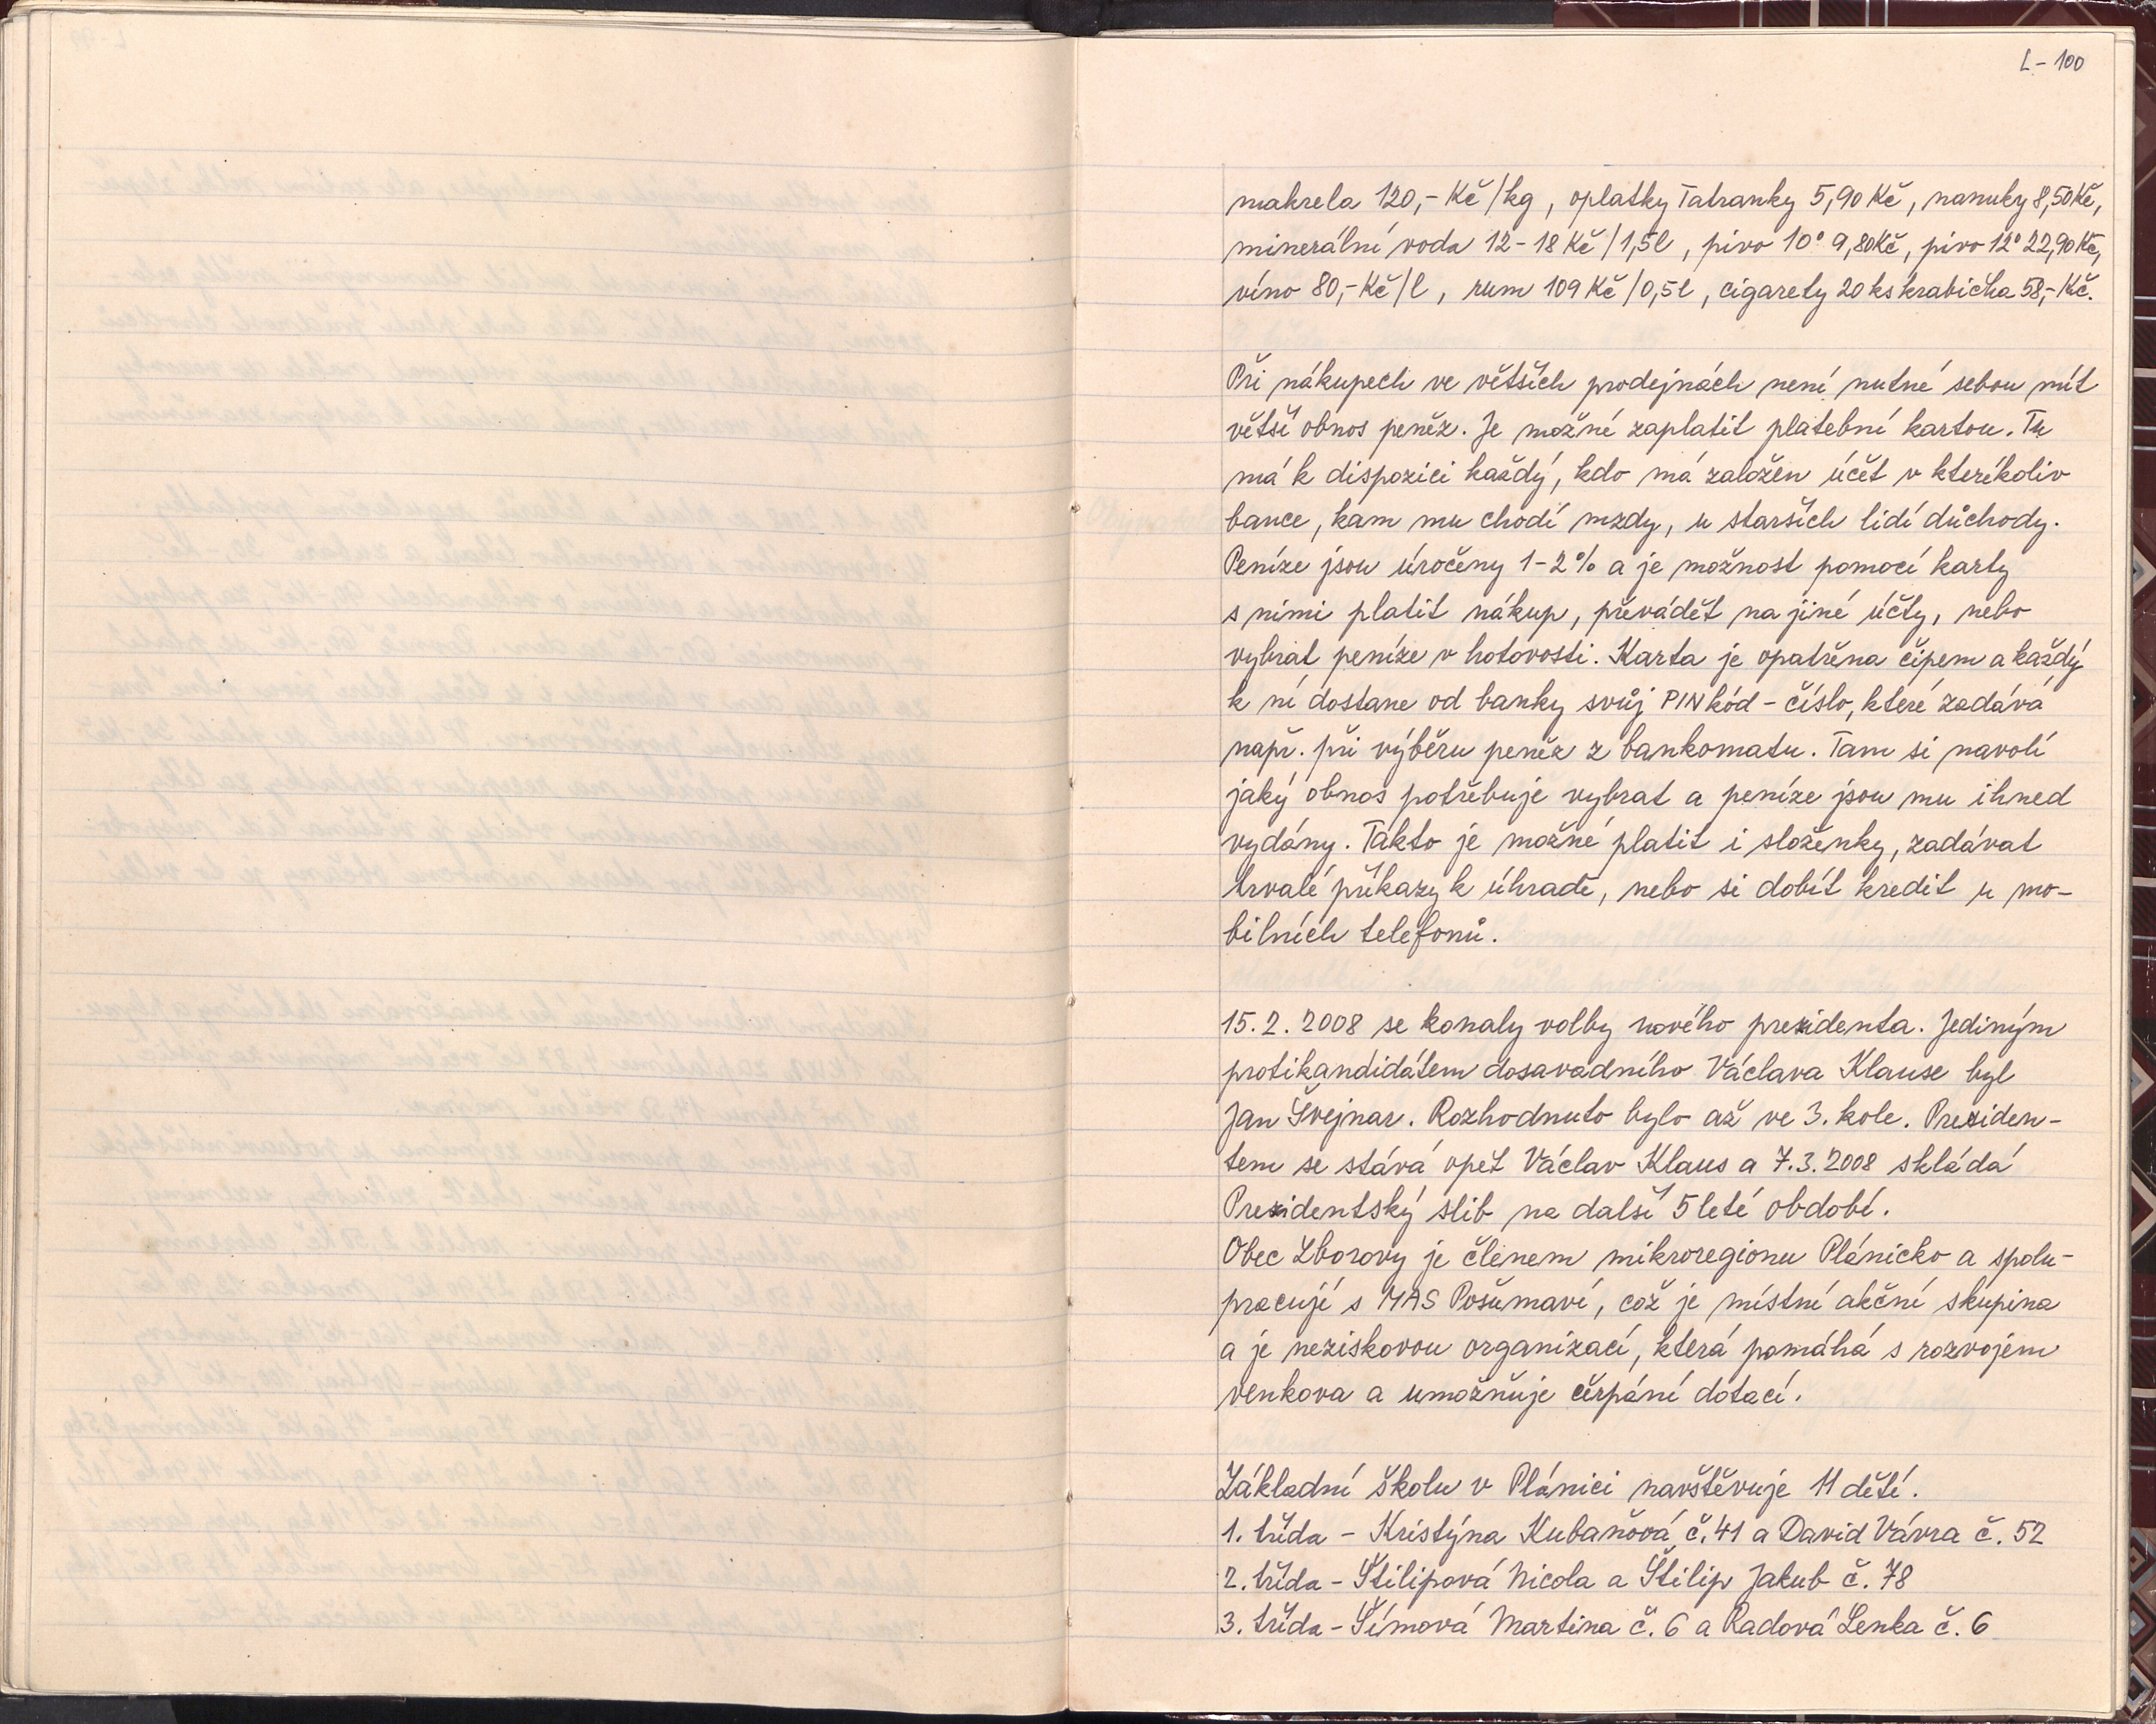 L-100
makrela 120,- Kč/kg, oplatky Tatranky 5,90 Kč, nanuky 8,50 Kč,
minerální voda 12-18 Kč/1,5l, pivo 10° 9,80 Kč, pivo 12° 22,90 Kč,
víno 80,- Kč/l, rum 109 Kč/0,5l, cigarety 20 ks krabička 58,- Kč.
Při nákupech ve větších prodejnách není nutné sebou mít
větší obnos peněz. Je možné zaplatit platební kartou. Tu
má k dispozici každý, kdo má založen účet v kteríkoliv
bance, kam mu chodí mzdy, u starších lidí důchody.
Peníze jsou úročeny 1-2% a je možnost pomocí karty
s nimi platit nákup, převádět na jiné účty, nebo
vybrat peníze v hotovosti. Karta je opatřena čipem a každý
k ní dostane od banky svůj PIN kód - číslo, které zadává
např. při výběru peněz z bankomatu. Tam si navolí
jaký obnos potřebuje vybrat a peníze jsou mu ihned
vydány. Takto je možné platit i složenky, zadávat
trvalé příkazy k úhradě, nebo si dobít kredit u mo-
bilních telefonů.
15.2.2008 se konaly volby nového prezidenta. Jediným
protikandidátem dosavadního Václava Klause byl
Jan Švejnar. Rozhodnuto bylo až ve 3. kole. Preziden-
tem se stává opět Václav Klaus a 7.3.2008 skládá
Prezidentský slib na další 5 leté období.
Obec Zborovy je členem mikroregionu Plánicko a spolu-
pracují s MAS Pošumaví, což je místní akční skupina
a je neziskovou organizací, která pomáhá s rozvojem
venkova a umožňuje čerpání dotací.
Základní školu v Plánici navštěvuje 11 dětí.
1. třída - Kristýna Kubaňová č. 41 a David Vávra č. 52
2. třída - Štilipová Nicola a Štilip Jakub č. 78
3. třída - Šímová Martina č. 6 a Radová Lenka č. 6